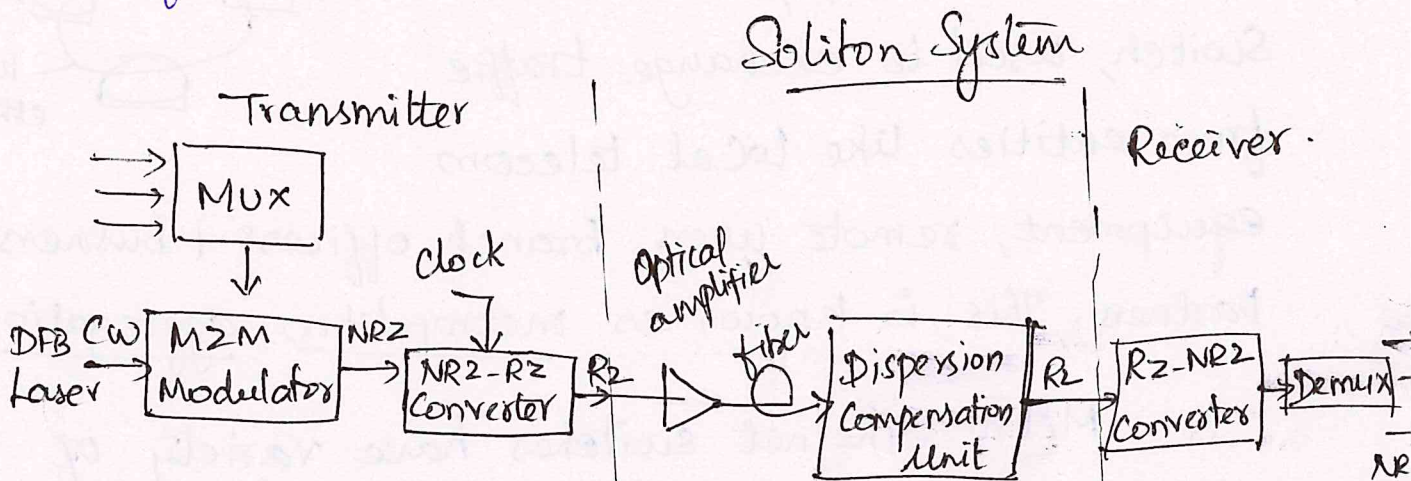 Soliton System
Transmitter
Receiver.
MUX
clock
Optical
amplifier
fiber
DFB CW
Laser
MZM
Modulator
NRZ
NRZ-RZ
Converter
RZ
Dispersion
Compensation
Unit
RZ
RZ-NRZ
Converter
Demux
NR